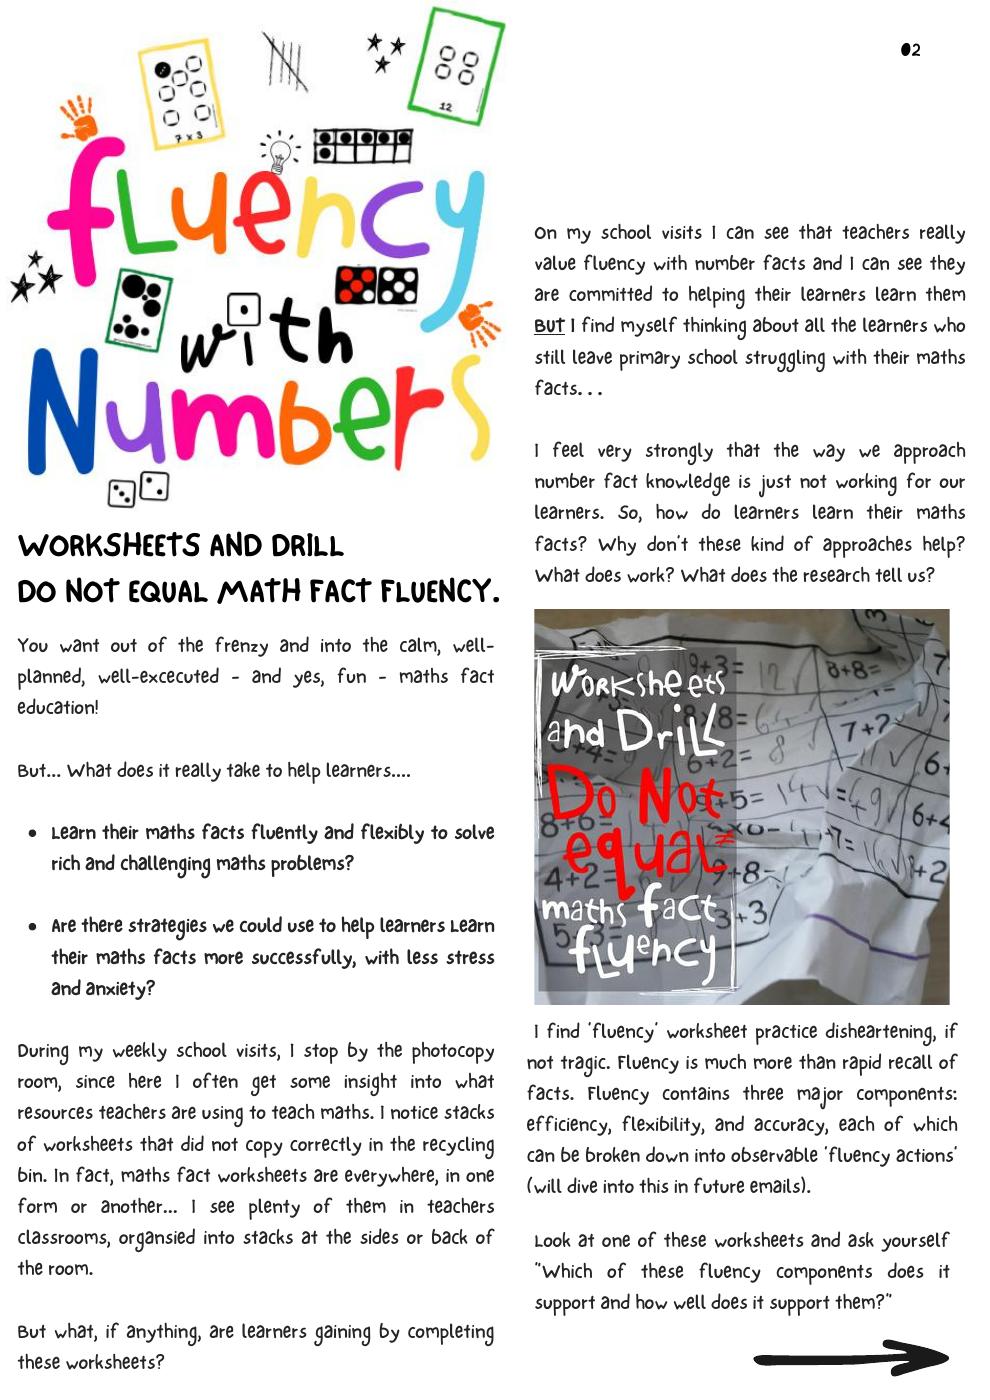 02
7 x 3
12
fluency
with
Numbers
WORKSHEETS AND DRILL
DO NOT EQUAL MATH FACT FLUENCY.
You want out of the frenzy and into the calm, well-
planned, well-excecuted - and yes, fun - maths fact
education!
But... What does it really take to help learners....
• Learn their maths facts fluently and flexibly to solve
rich and challenging maths problems?
• Are there strategies we could use to help learners Learn
their maths facts more successfully, with less stress
and anxiety?
During my weekly school visits, I stop by the photocopy
room, since here I often get some insight into what
resources teachers are using to teach maths. I notice stacks
of worksheets that did not copy correctly in the recycling
bin. In fact, maths fact worksheets are everywhere, in one
form or another... I see plenty of them in teachers
classrooms, organsied into stacks at the sides or back of
the room.
But what, if anything, are learners gaining by completing
these worksheets?
On my school visits I can see that teachers really
value fluency with number facts and I can see they
are committed to helping their learners learn them
BUT I find myself thinking about all the learners who
still leave primary school struggling with their maths
facts...
I feel very strongly that the way we approach
number fact knowledge is just not working for our
learners. So, how do learners learn their maths
facts? Why don't these kind of approaches help?
What does work? What does the research tell us?
Worksheets
and Drill
Do Not
equal≠
maths fact
fluency
9+3= 12
8+8=
8x8= 64
7+7
6+2= 8
6+
9+5= 14
=49
6+4
8+6=
4+2=
9+8=
+2
3+3
I find 'fluency' worksheet practice disheartening, if
not tragic. Fluency is much more than rapid recall of
facts. Fluency contains three major components:
efficiency, flexibility, and accuracy, each of which
can be broken down into observable 'fluency actions'
(will dive into this in future emails).
Look at one of these worksheets and ask yourself
"Which of these fluency components does it
support and how well does it support them?"